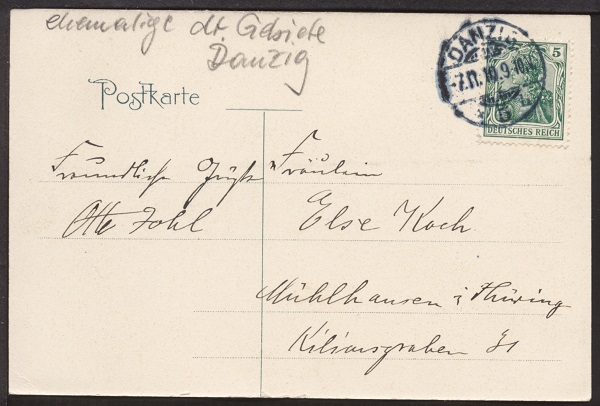 ehemalige dt. Gebiete
Danzig
Postkarte
DANZIG
5
-7.11.10.9-10
DEUTSCHES REICH
Freundliche Grüße
Otto Zohl
Fräulein
Else Koch
Mühlhausen i Thüring
Kiliansgraben